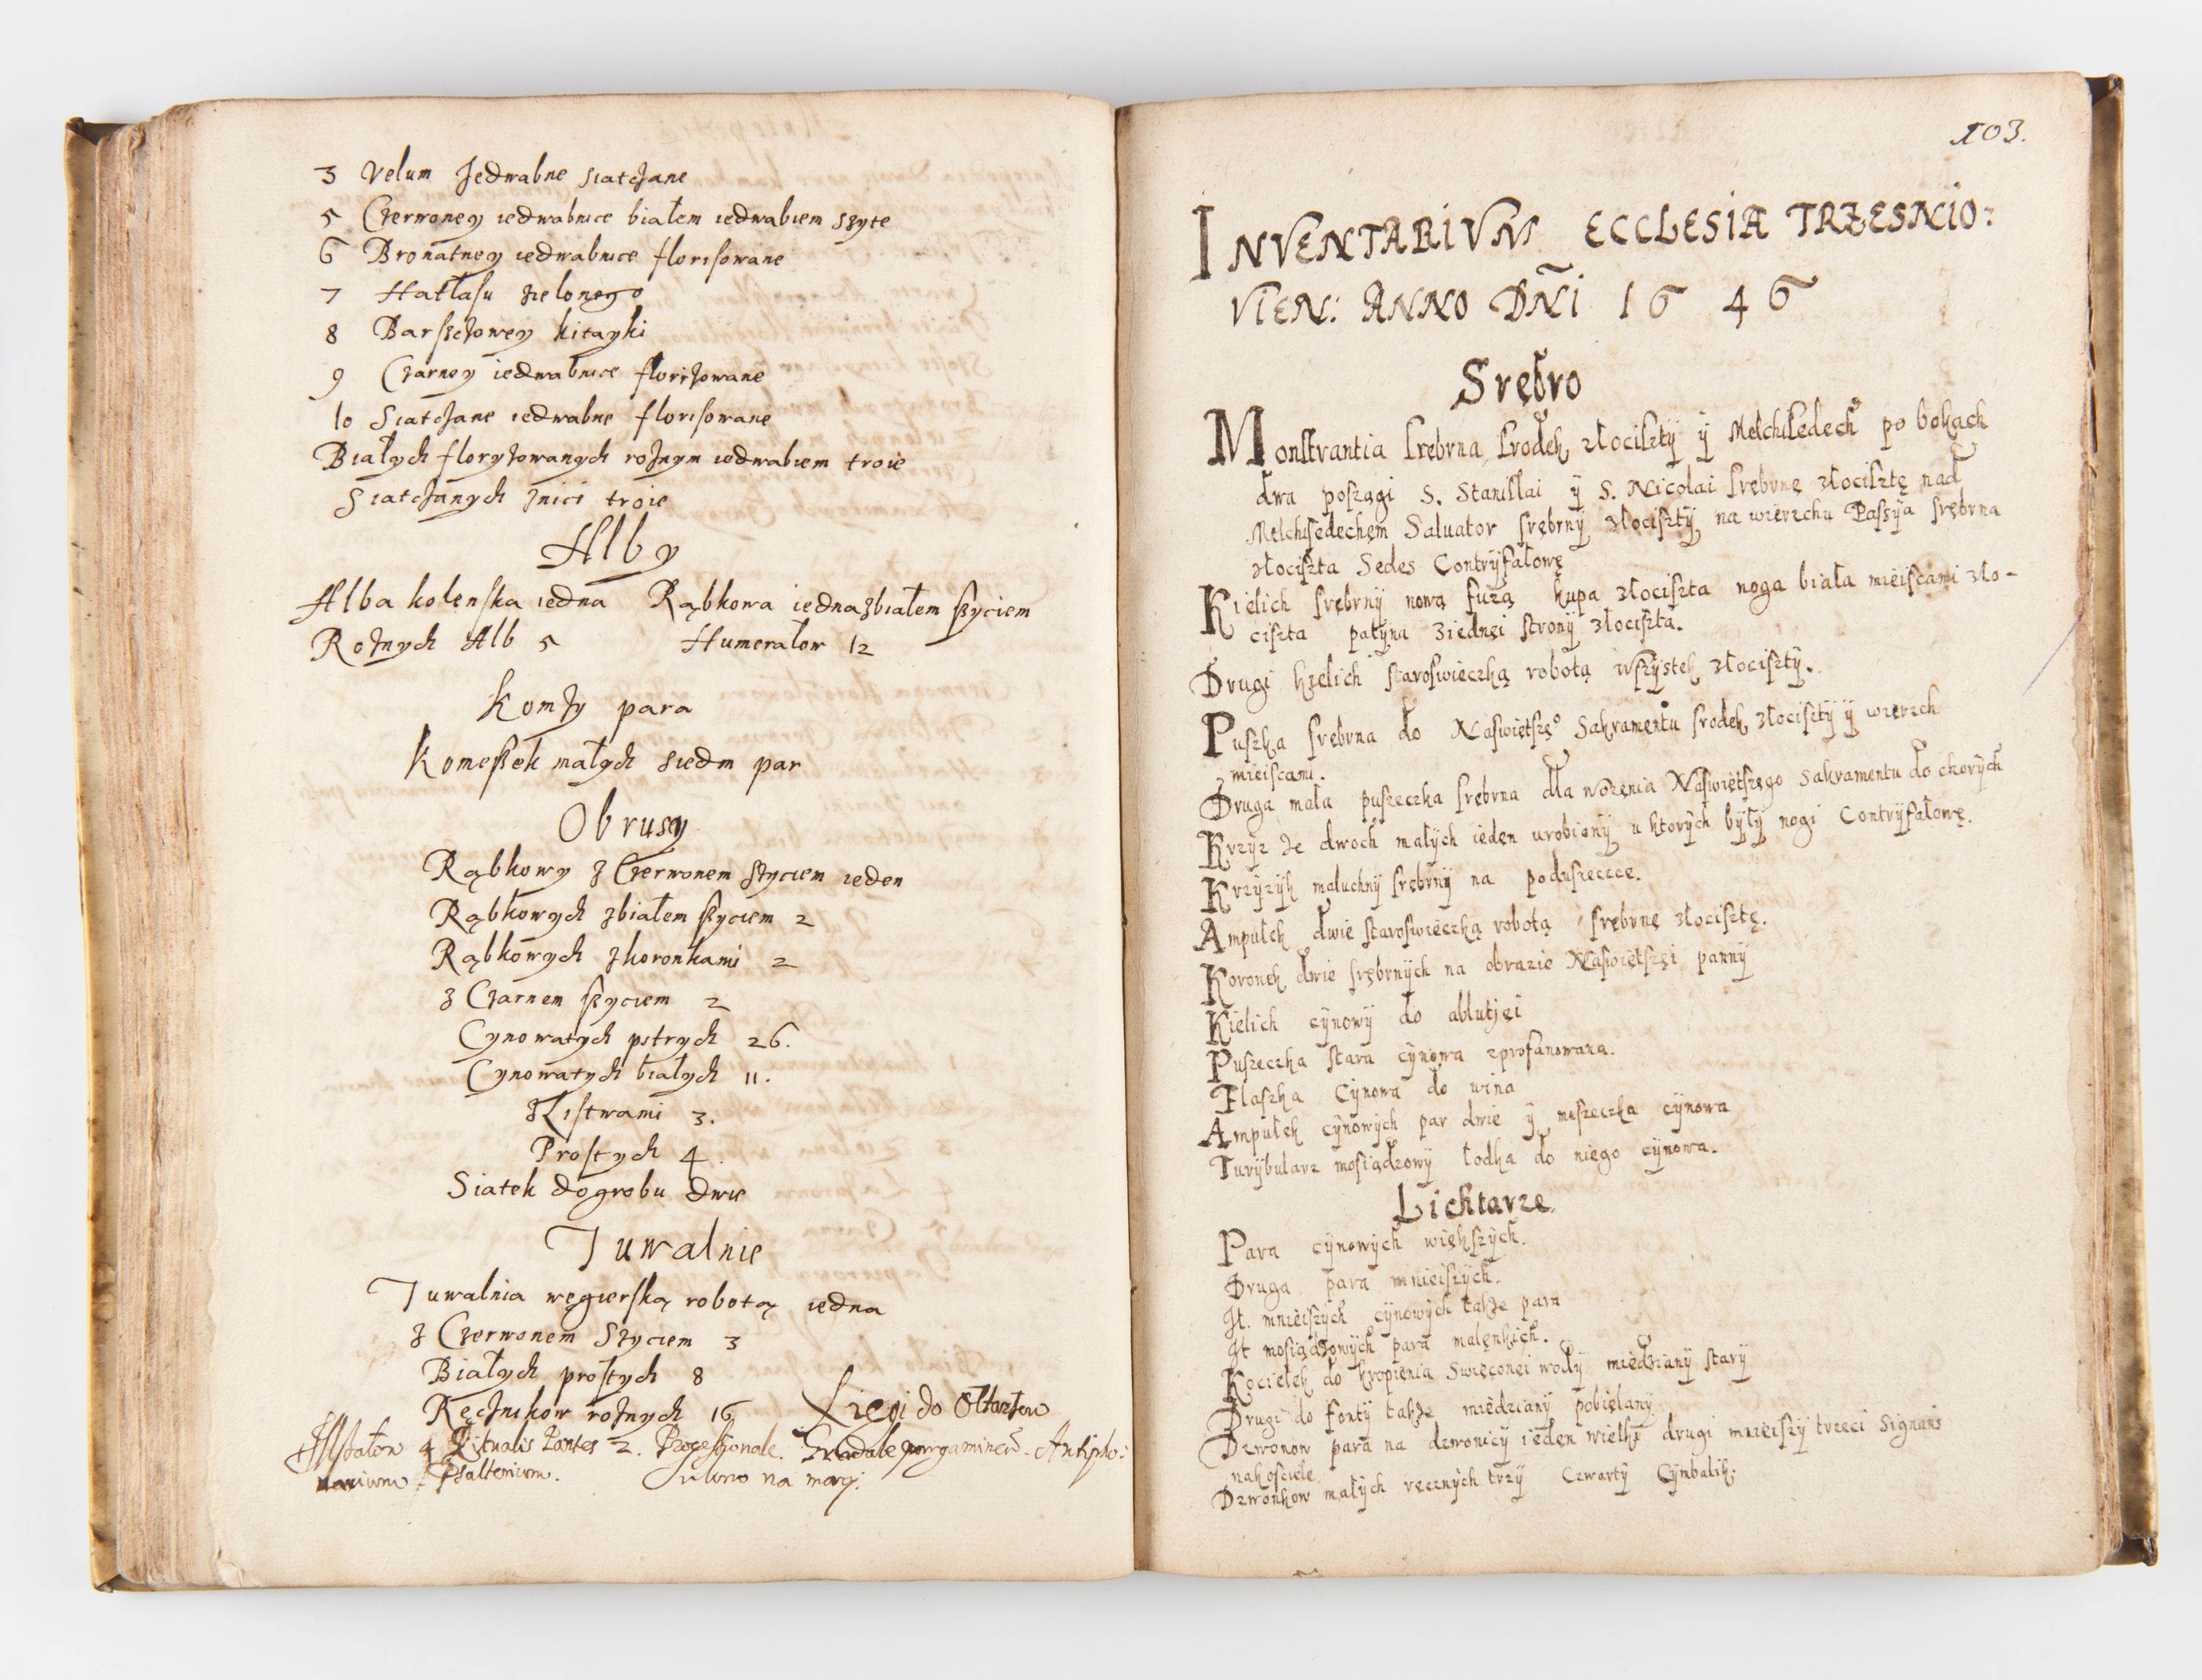 3 Velum Jedwabne siatczane
5 Czerwoney iedwabnice białem iedwabiem szyte
6 Bronatney iedwabnice florisowane
7 Hatłasu zielonego
8 Barszczowey kitayki
9 Czarney iedwabnice florizowane
10 Siatczane iedwabne florisowane
Białych floryzowanych roznym iedwabiem troie
Siatczanych znici troie
Alby
Alba kolenska iedna Rąbkowa iedna zbiałem szyciem
Roznych Alb 5 Humerałow 12
Komzy para
Komeszek małych siedm par
Obrusy
Rąbkowy z Czerwonem szyciem ieden
Rąbkowych zbiałem szyciem 2
Rąbkowych zkoronkami 2
z Czarnem szyciem 2
Cynowatych pstrych 26.
Cynowatych białych 11.
zListwami 3.
Prostych 4.
Siatek do grobu dwie
Tuwalnie
Tuwalnia węgierską robotą iedna
z Czerwonem Szyciem 3
Białych prostych 8
Ręcznikow roznych 16 do Ołtarzow
Mszałow 4 Ritualis 2. Processionale. Graduale Antipho:
narium Psalterium. na
103.
INVENTARIVM ECCLESIÆ TRZESNIO:
VIEN: ANNO DÑI 1646
Srębro
Monstrantia srebrna, srodek złocisty ÿ Melchisedech po bokach
dwa poszągi S. Stanislai ÿ S. Nicolai srębrnę złocisztę nad
Melchisedechęm Saluator srębrnÿ złocisztÿ na wierzchu Passÿa srębrna
złociszta Sedes Contrÿfałowę
Kielich srębrnÿ nową fuzą kupa złociszta noga biała mieiscami zło-
ciszta patÿna ziednęi stronÿ złociszta.
Drugi kielich staroswieczką robotą wszÿstek złocisztÿ.
Puszka srebrna do Naswiętszę° Sakramentu srodek złocisztÿ ÿ wierzch
mieiscami.
Druga mała puszeczka srebrna dla nozęnia Naswiętszęgo Sakramentu do chorÿch
Krzÿz ze dwoch małÿch ieden urobionÿ u ktorÿch bÿłÿ nogi Contrÿfałowę.
Krzÿzÿk maluchnÿ srębrnÿ na poduszeczce.
Ampułek dwie staroswieczką robotą srębrnę złocisztę.
Koronek dwie srębrnÿch na obrazie Naswiętszęi pannÿ
Kielich cÿnowÿ do ablutjęi
Puszeczka stara cÿnowa zprofanowana.
Flaszka Cÿnowa do wina
Ampułek cÿnowÿch par dwie ÿ miszeczka cÿnowa
Turÿbularz mosiądzowÿ łodka do niego cÿnowa.
Lichtarze
Para cÿnowÿch większÿch.
Druga para mnieiszÿch.
It. mnieiszÿch cÿnowÿch takze para
It mosiądzowÿch para malęnkich.
Kociełek do kropienia Swięconei wodÿ miedzianÿ starÿ
Drugi do fontÿ takze miedzianÿ pobielanÿ
Dzwonow para na dzwonicÿ ieden wielkÿ drugi mnieiszÿ trzeci Signans
nakosciele
Dzwonkow małÿch recznÿch trzÿ Czwartÿ Cÿmbalik.